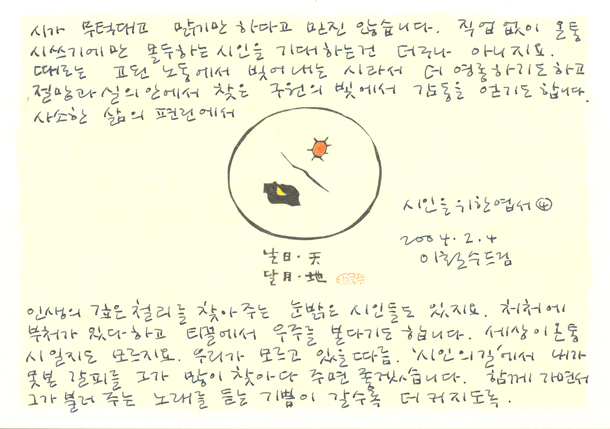 시가 무턱대고 맑기만 하다고 만진 않습니다. 직업 없이 온통
시쓰기에만 몰두하는 시인을 기대하는건 더구나 아니지요.
때로는 고된 노동에서 빚어내는 시라서 더 영롱하기도하고
절망과 실의 안에서 찾은 구원의 빛에서 감동을 얻기도합니다.
사소한 삶의 편린에서
시인을위한엽서 ④
2004.2.4
이철수드림
날 日·天
달 月·地
인생의 깊은 철리를 찾아주는 눈밝은 시인들도 있지요. 처처에
부처가 있다하고 티끌에서 우주를 본다기도 합니다. 세상이 온통
시일지도 모르지요. 우리가 모르고 있을따름. '시인의길'에서 내가
못본 갈피를 그가 많이 찾아다 주면 좋겠습니다. 함께 가면서
그가 불러 주는 노래를 듣는 기쁨이 갈수록 더 커지도록.